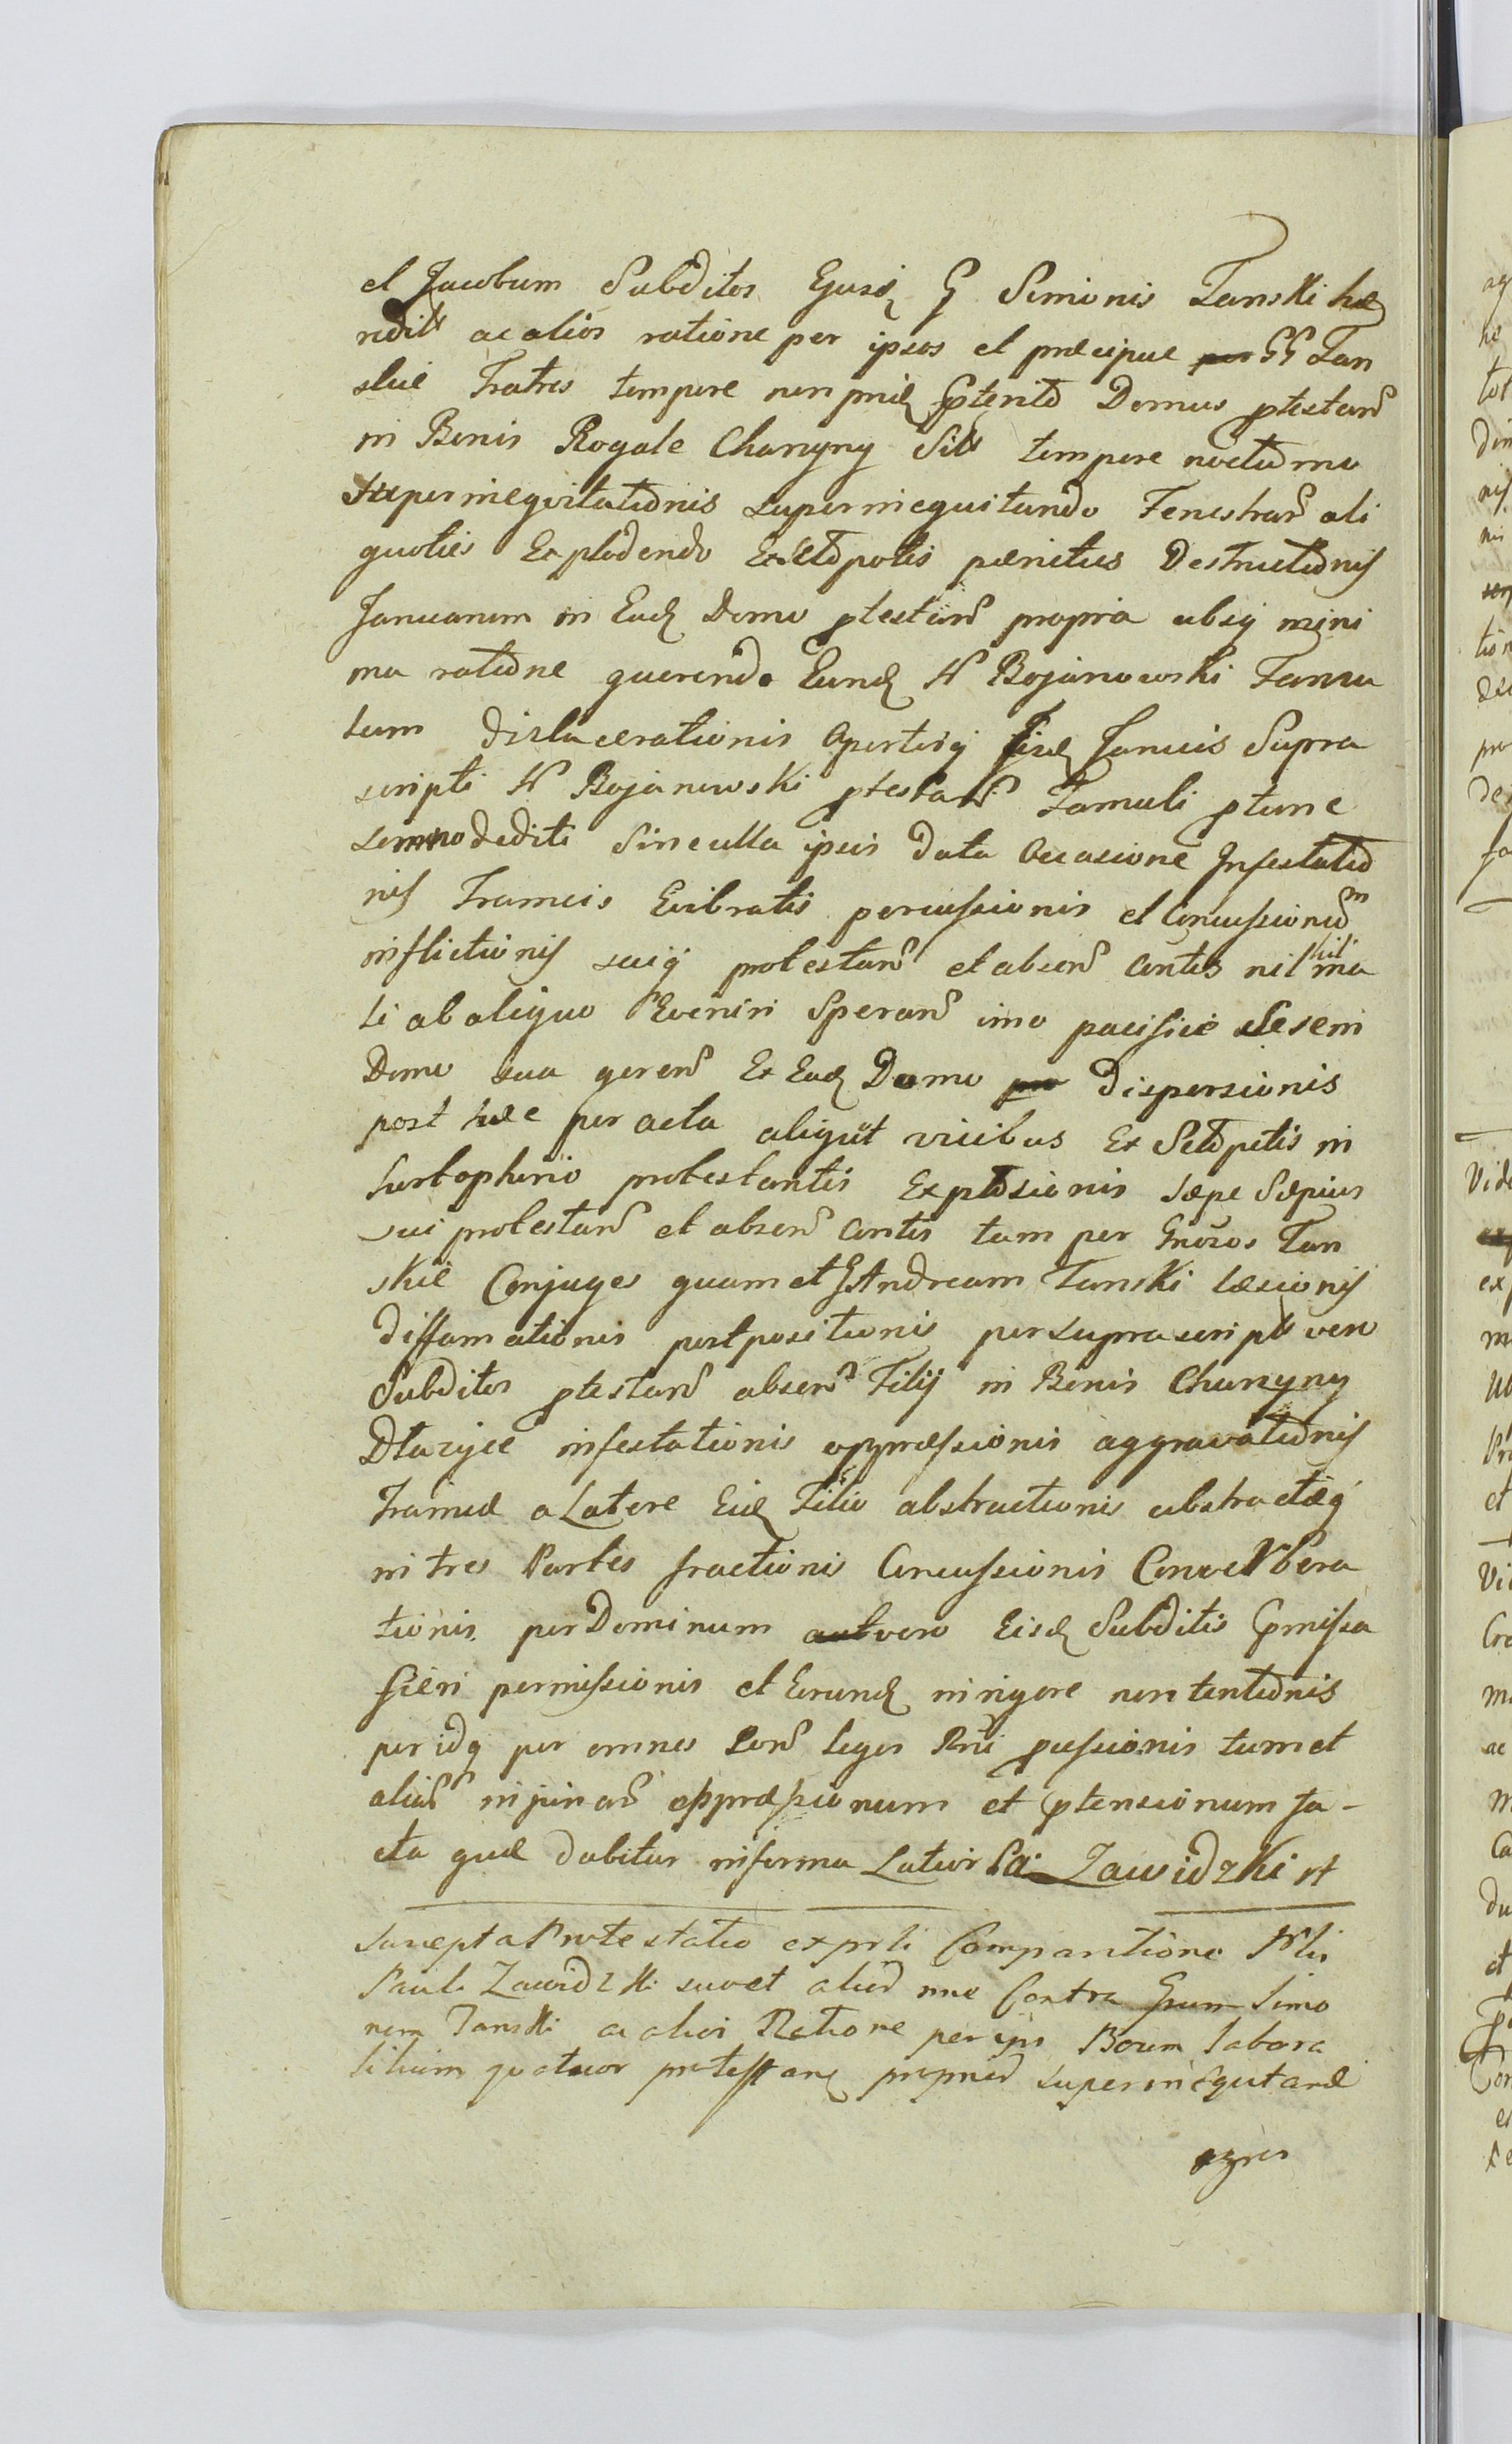 et Jacobum Subditos Ejusd G Simionis Tanski hæ
redit ac alios ratione per ipsos et præcipue per GG Tan
skie Fratres tempore non prid pterito Domus ptestans
in Bonis Rogale Charzyny Sit tempore nocturno
superinequitationis superinequitando Fenestrar ali
quoties Explodendo Ex Sclopotis pænitus Destructionis
Januarum in Ead Domo ptestans propria absq mini
ma ratione querendo Eund N Bojanowski Famu
lum dislacerationis Apertisq Iisd Januis Supra
scripti N Bojanowski ptestans Famuli ptunc
somno dediti Sine ulla ipsis data Occasione Infestatio
nis Frameis Evibratis percussionis et Concussionum
inflictionis suiq protestans et absen Contis nil hil ma
li ab aliquo Eveniri Sperans imo pacifice Sese in
Domo sua gerens Ex Ead Domo pro dispersionis
post hæc per acta aliquot vicibus Ex Sclopetis in
hortopherio protestantis Explosionis sæpe Sæpius
sui protestans et absens Contis tam per Gnosos Tan
skie Conjuges quam et G Andream Tanski læsionis
diffamationis postpositionis per suprascript vero
Subditos ptestans absens Filij in Bonis Charzyny
Dłuzyce infestationis oppræssionis aggravationis
Frameæ a Latere Eid Filio abstractionis abstractæq
in tres Partes fractionis Concussionis Converbera
tionis per Dominum aut vero Eisd Subditis Pmissa
fieri permissionis et Eorund in rigore non tentionis
per idq per omnes Pons leges Rni pcussionis tum et
aliar injuriar oppræssionum et ptensionum fa-
cta quæ dabitur in forma Latiori Pa: Zawidzki N
Suscepta Protestatio ex prli Comparitione Nlis
Pauli Zawidzki suo et alior nne Contra Gsum Simo
nem Tanski ac alios Ratione per ips Boum labora
litium quatuor protestans propriod superinequitand